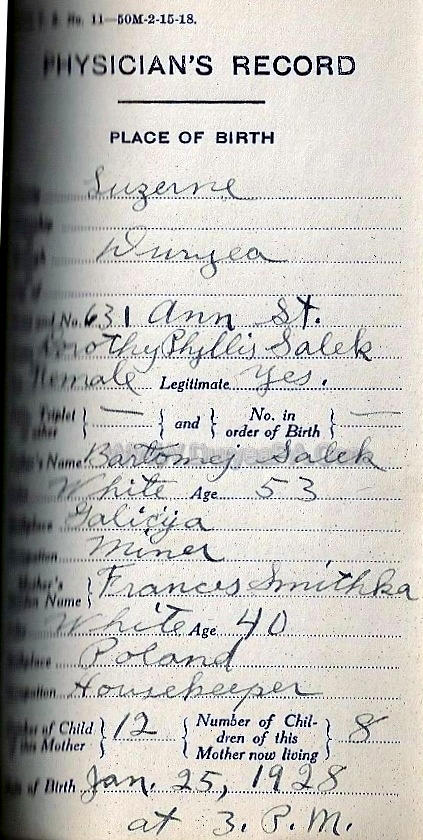 No. 11—50M-2-15-18.
PHYSICIAN'S RECORD
PLACE OF BIRTH
Luzerne
Duryea
No. 631 Ann St.
Dorothy Phyllis Salek
Female Legitimate Yes.
Triplet — and No. in order of Birth —
Name Bartomej Salek
White Age 53
Galicija
Miner
Mother's Name Frances Smithka
White Age 40
Poland
Housekeeper
of Child this Mother 12 Number of Children of this Mother now living 8
of Birth Jan. 25, 1928
at 3. P.M.